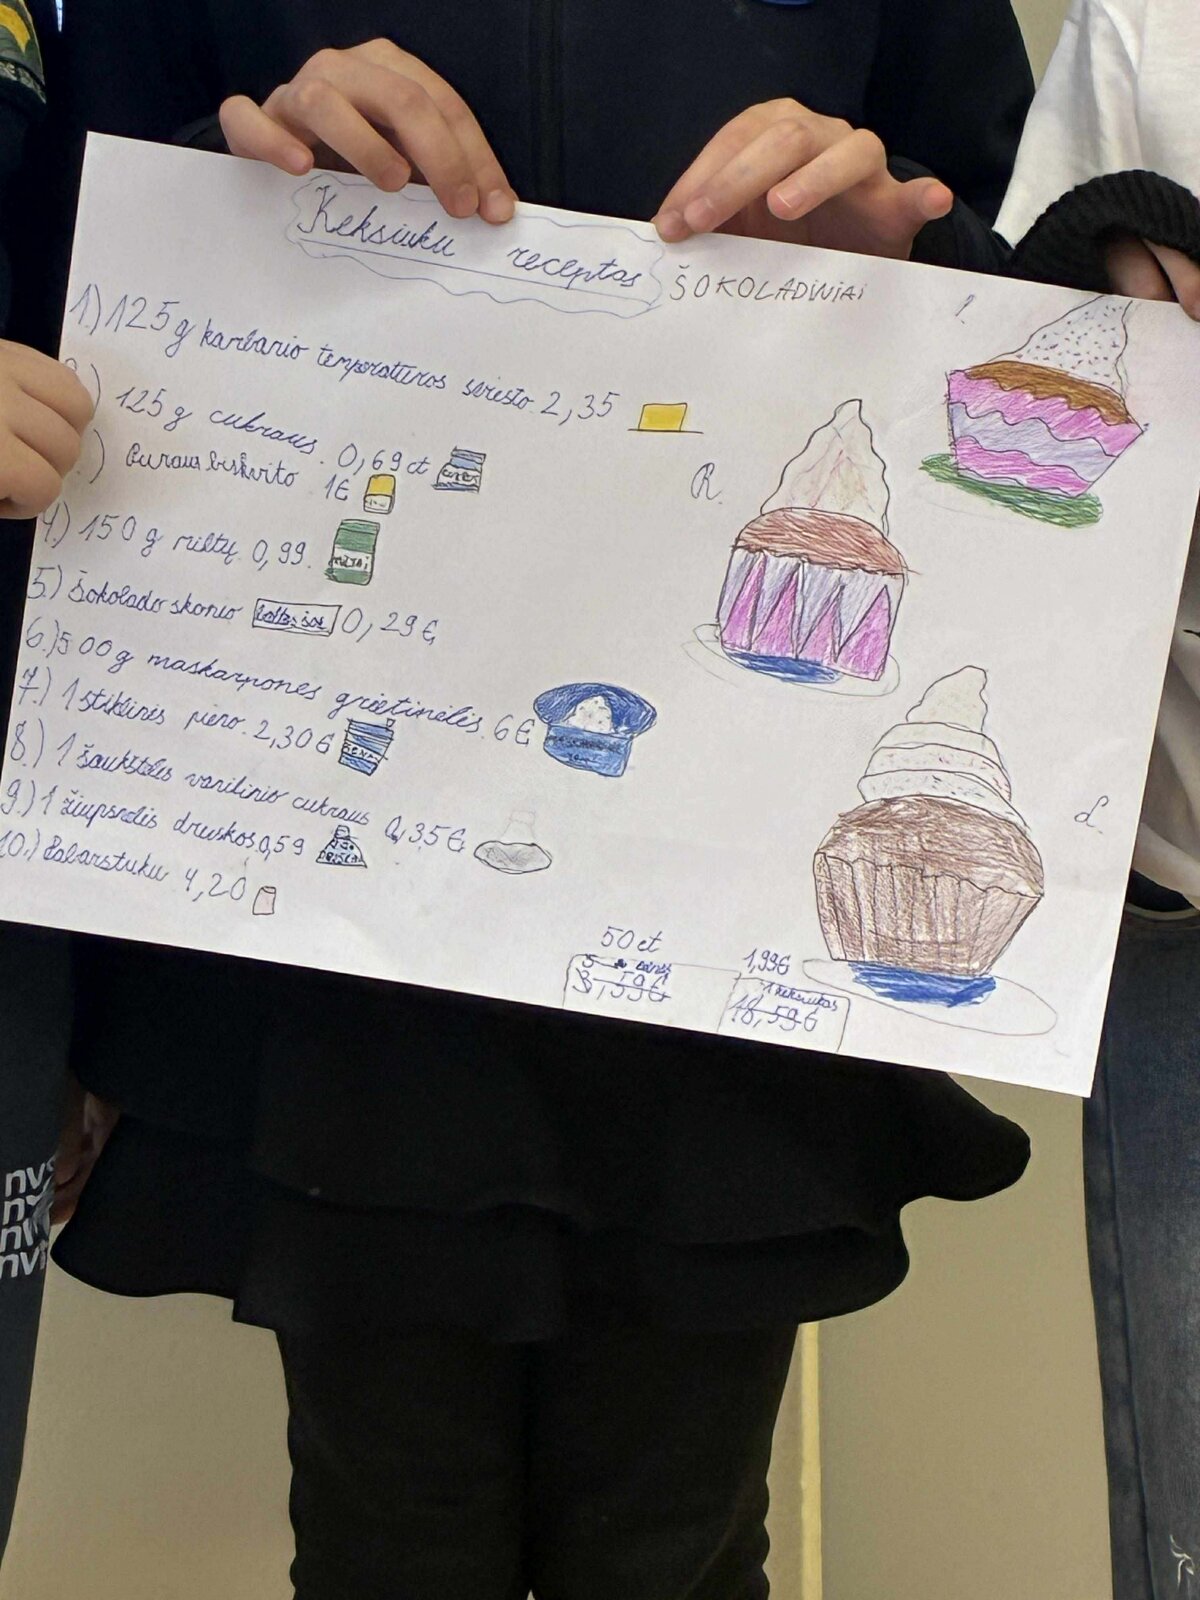 Keksiukų receptas ŠOKOLADINIAI
1.
1.) 125 g kambario temperatūros sviesto. 2,35
125 g cukraus. 0,69 ct
biskvito 1€
R.
4.) 150 g miltų. 0,99.
MILTAI
5.) Šokolado skonio 0,29 €
6.) 500 g maskarponės grietinėlės. 6€
7.) 1 stiklinės pieno. 2,30€
8.) 1 šaukštelis vanilinio cukraus 0,35€
9.) 1 žiupsnelis druskos 0,59
10.) Pabarstukų 4,20
L.
50 ct
1,99€
1 keksiukas
18,59€
nvs